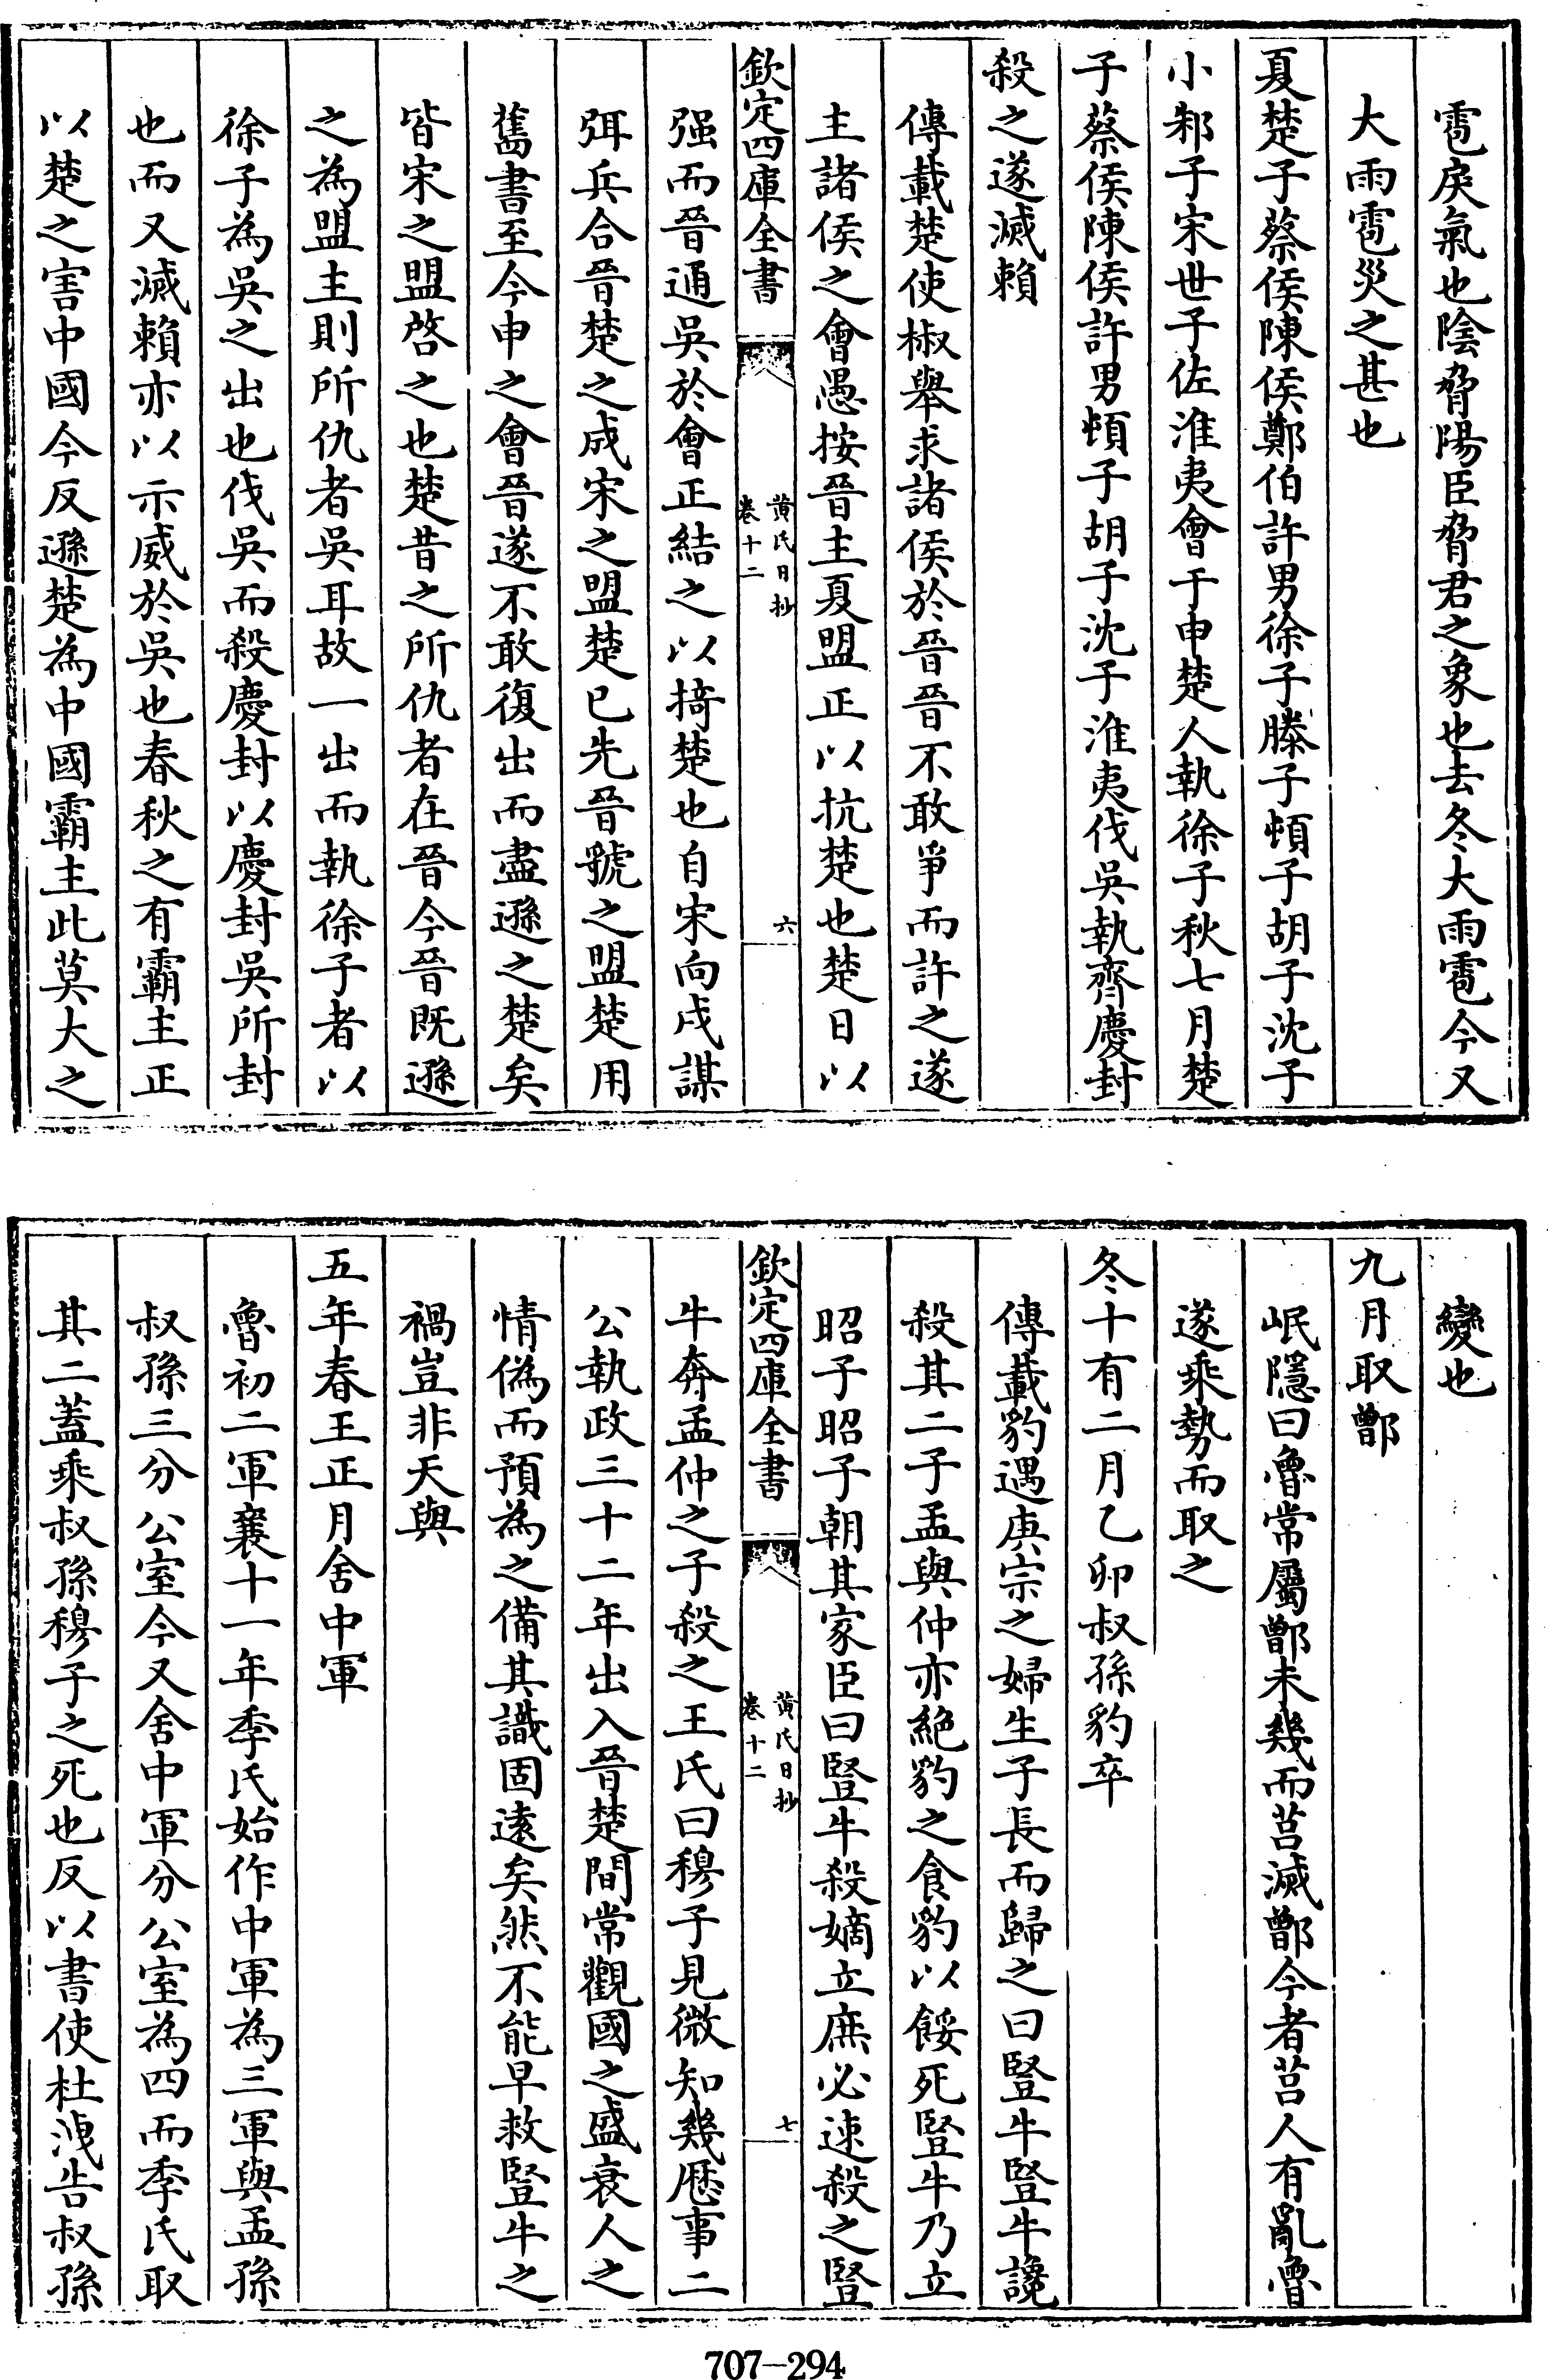 雹戾氣也陰脅陽臣脅君之象也去冬大雨雹今又
大雨雹災之甚也
夏楚子蔡侯陳侯鄭伯許男徐子滕子頓子胡子沈子
小邾子宋世子佐淮夷會于申楚人執徐子秋七月楚
子蔡侯陳侯許男頓子胡子沈子淮夷伐吳執齊慶封
殺之遂滅賴
傳載楚使椒舉求諸侯於晉晉不敢爭而許之遂
主諸侯之會愚按晉主夏盟正以抗楚也楚日以
欽定四庫全書
黃氏日抄
卷十二
六
强而晉通吳於會正結之以掎楚也自宋向戌謀
弭兵合晉楚之成宋之盟楚已先晉虢之盟楚用
舊書至今申之會晉遂不敢復出而盡遜之楚矣
皆宋之盟啓之也楚昔之所仇者在晉今晉既遜
之為盟主則所仇者吳耳故一出而執徐子者以
徐子為吳之出也伐吳而殺慶封以慶封吳所封
也而又滅賴亦以示威於吳也春秋之有霸主正
以楚之害中國今反遜楚為中國霸主此莫大之
變也
九月取鄫
岷隱曰魯常屬鄫未幾而莒滅鄫今者莒人有亂魯
遂乘勢而取之
冬十有二月乙卯叔孫豹卒
傳載豹遇庚宗之婦生子長而歸之曰豎牛豎牛讒
殺其二子孟與仲亦絕豹之食豹以餒死豎牛乃立
昭子昭子朝其家臣曰豎牛殺嫡立庶必速殺之豎
欽定四庫全書
黃氏日抄
卷十二
七
牛奔孟仲之子殺之王氏曰穆子見微知幾歷事二
公執政三十二年出入晉楚間常觀國之盛衰人之
情偽而預為之備其識固遠矣然不能早救豎牛之
禍豈非天與
五年春王正月舍中軍
魯初二軍襄十一年季氏始作中軍為三軍與孟孫
叔孫三分公室今又舍中軍分公室為四而季氏取
其二蓋乘叔孫穆子之死也反以書使杜洩告叔孫
707-294